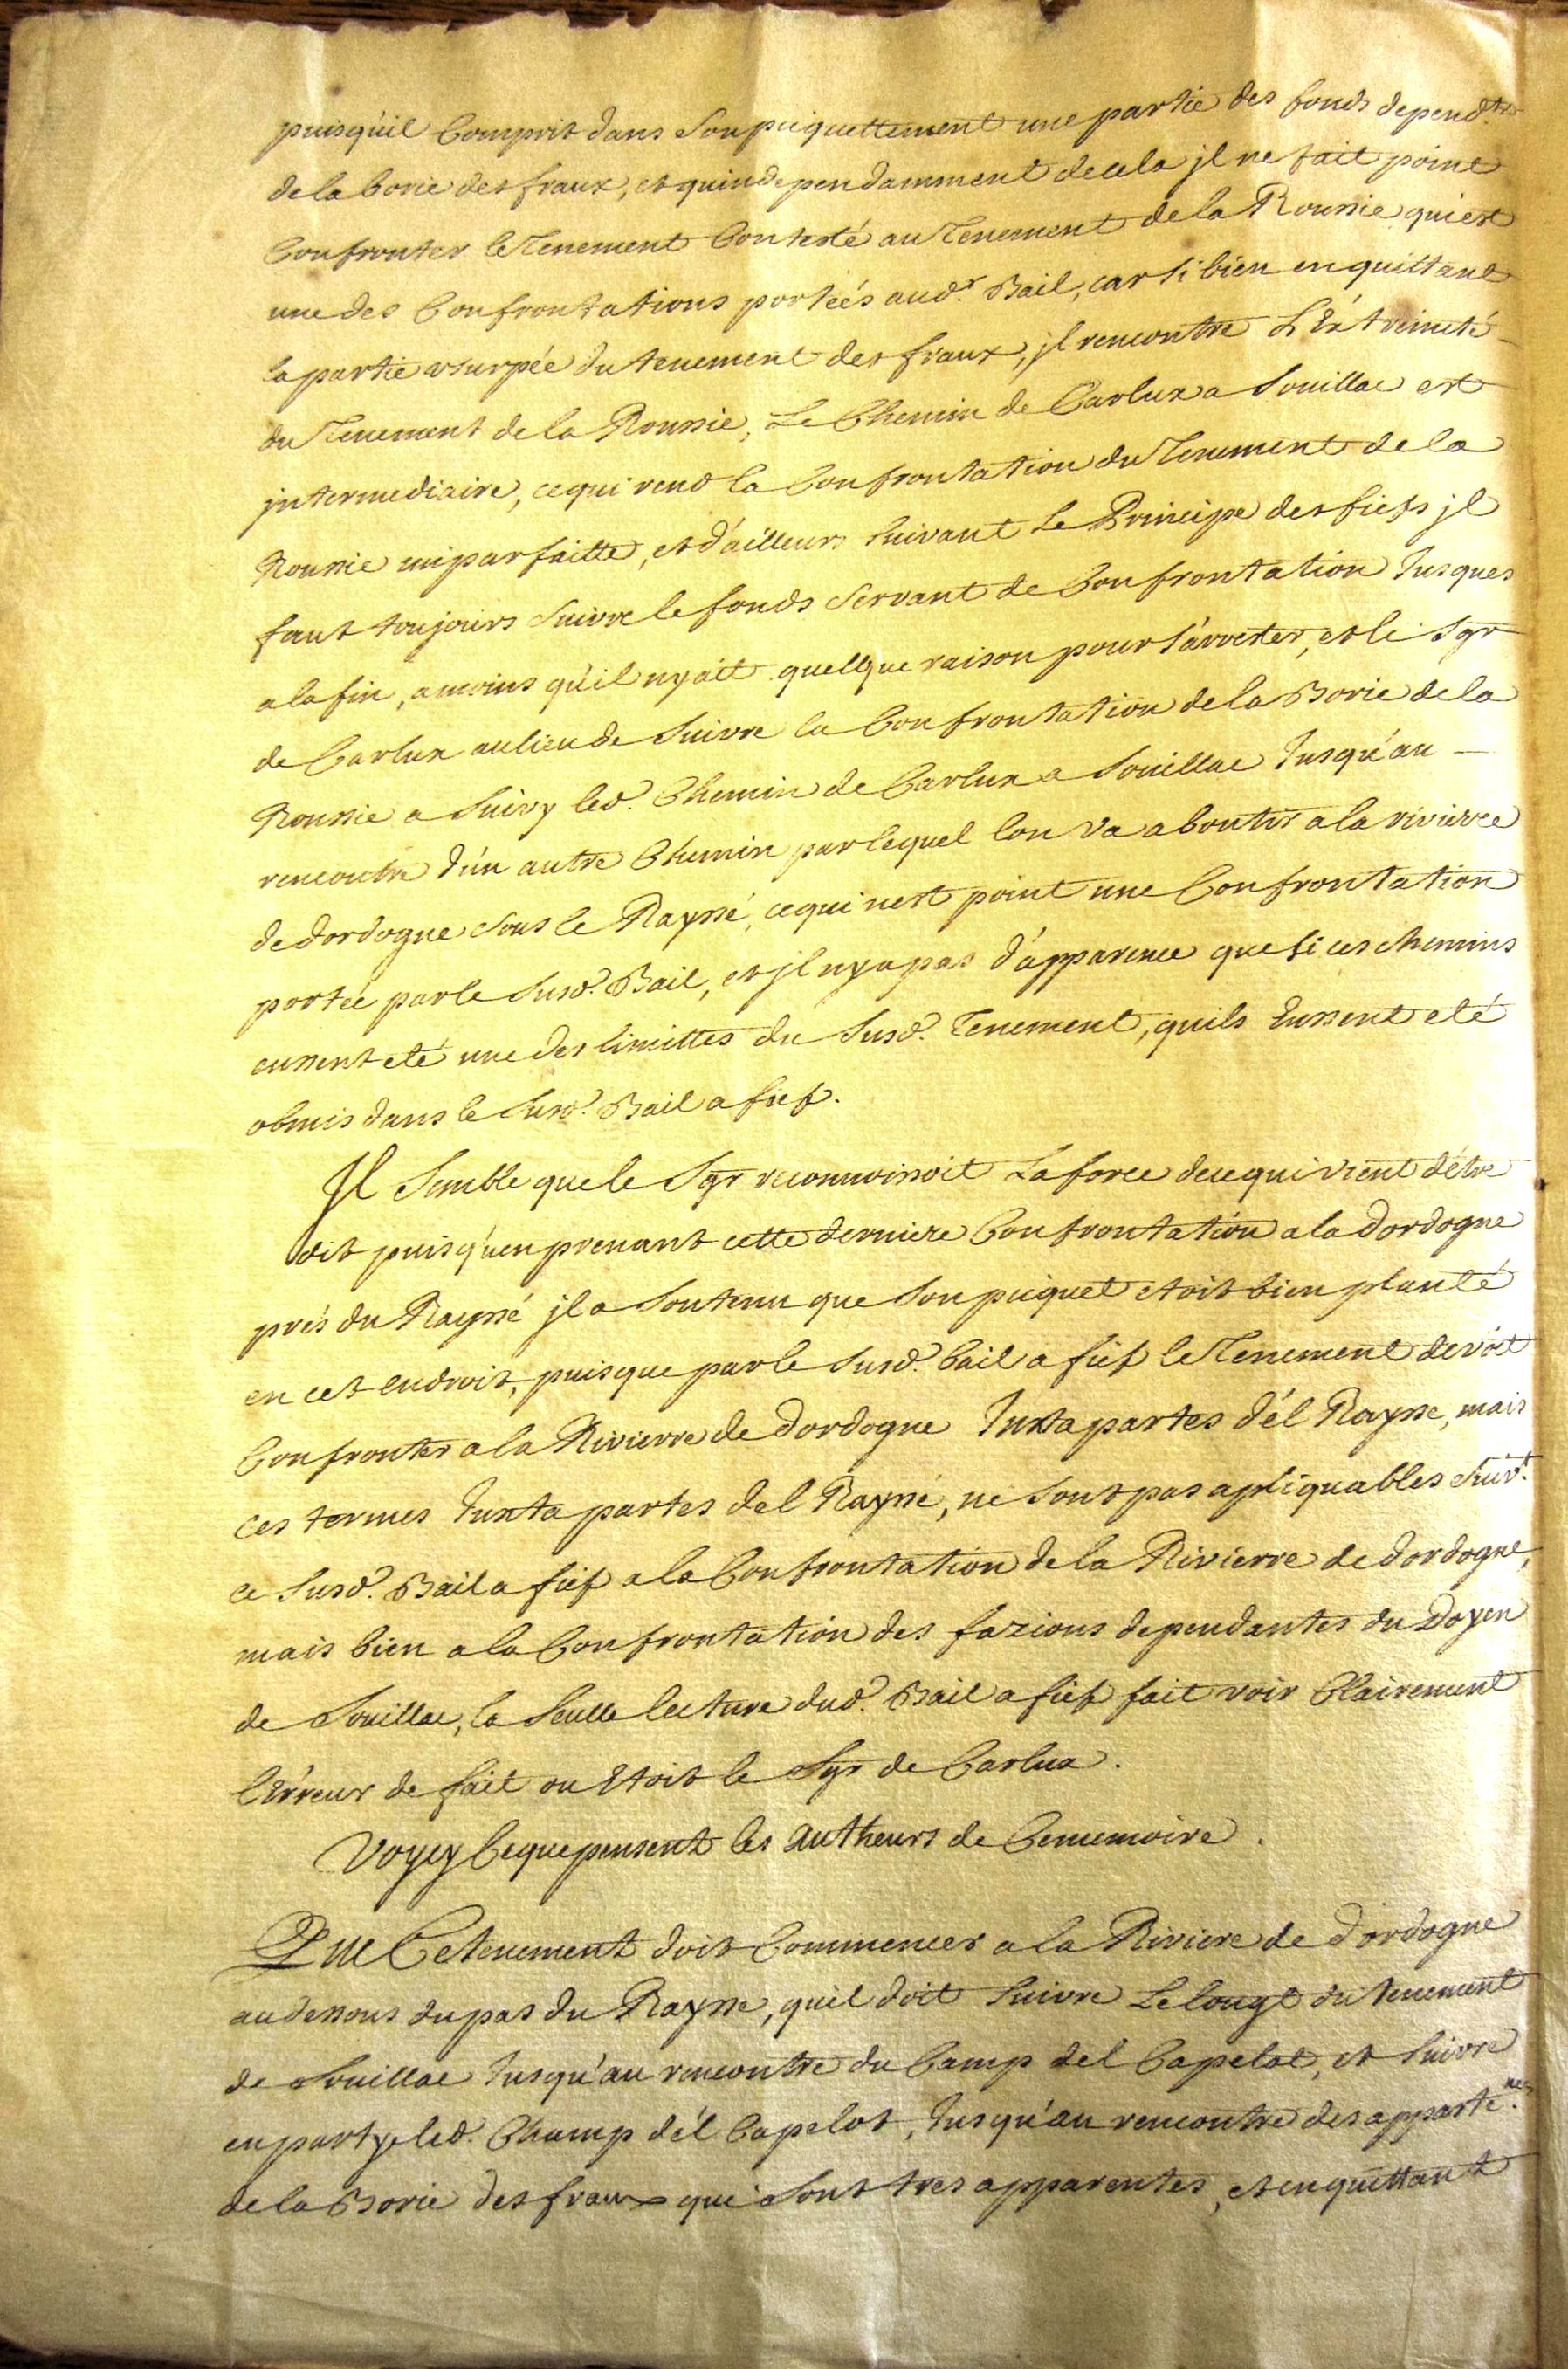 puisqu'il Comprit dans Son piquettement une partie des fonds depend.ts
de la borie des fraux, et quindependamment de cela jl ne fait point
Confronter le Tenement Contesté au Tenement de la Roussie qui est
une des Confrontations portéés aud.t Bail, car si bien en quittant
la partie usurpée du tenement des fraux, jl rencontre L'Extremité
du Tenement de la Roussie, Le Chemin de Carlux a Souillac est
jntermediaire, ce qui rend la Confrontation du Tenement de la
Roussie imparfaitte, et d'ailleurs Suivant Le Principe des fiefs jl
faut toujours Suivre le fonds Servant de Confrontation Jusques
a la fin, a moins qu'il ny ait quellque raison pour S'arreter, et le Sgr
de Carlux au lieu de Suivre la Confrontation de la Borie de la
Roussie a Suivy led. Chemin de Carlux a Souillac Jusqu'au
rencontre d'un autre Chemin par lequel lon va aboutir a la rivierre
de dordogne Sous le Raÿssé, ce qui nest point une Confrontation
portée par le Susd. Bail, et jl ny a pas d'apparence que si ces chemins
eussent eté une des limittes du Susd. Tenement, quils Eussent eté
obmis dans le Susd. Bail a fief.
Jl Semble que le Sgr reconnoissoit La force de ce qui vient d'être
dit puisqu'en prenant cette derniere Confrontation a la Dordogne
prés du Raÿssé jl a Soutenu que Son piquet etoit bien planté
en cet endroit, puisque par le Susd. bail a fief le Tenement devoit
Confronter a la Rivierre de Dordogne Juxta partes d'él Raysse, mais
ces termes Juxta partes del Raÿssé, ne Sont pas apliquables Suiv.t
ce Susd. Bail a fief a la Confrontation de la Rivierre de dordogne,
mais bien a la Confrontation des fazions dependantes du Doyen
de Souillac, la Seulle lecture dud. Bail a fief fait voir Clairement
l'Erreur de fait ou Etoit le Sgr de Carlux.
Voycy Ce que pensent les autheurs de Ce memoire.
Que Ce tenement doit Commencer a la Riviere de Dordogne
au dessous du pas du Raysse, quil doit Suivre Le longt du tenement
de Souillac Jusqu'au rencontre du Camp del Capelot, et Suivre
en partye led. Champ d'él Capelot, Jusqu'au rencontre des apparte.nces
de la Borie des fraux qui Sont tres apparentes, et en quittant